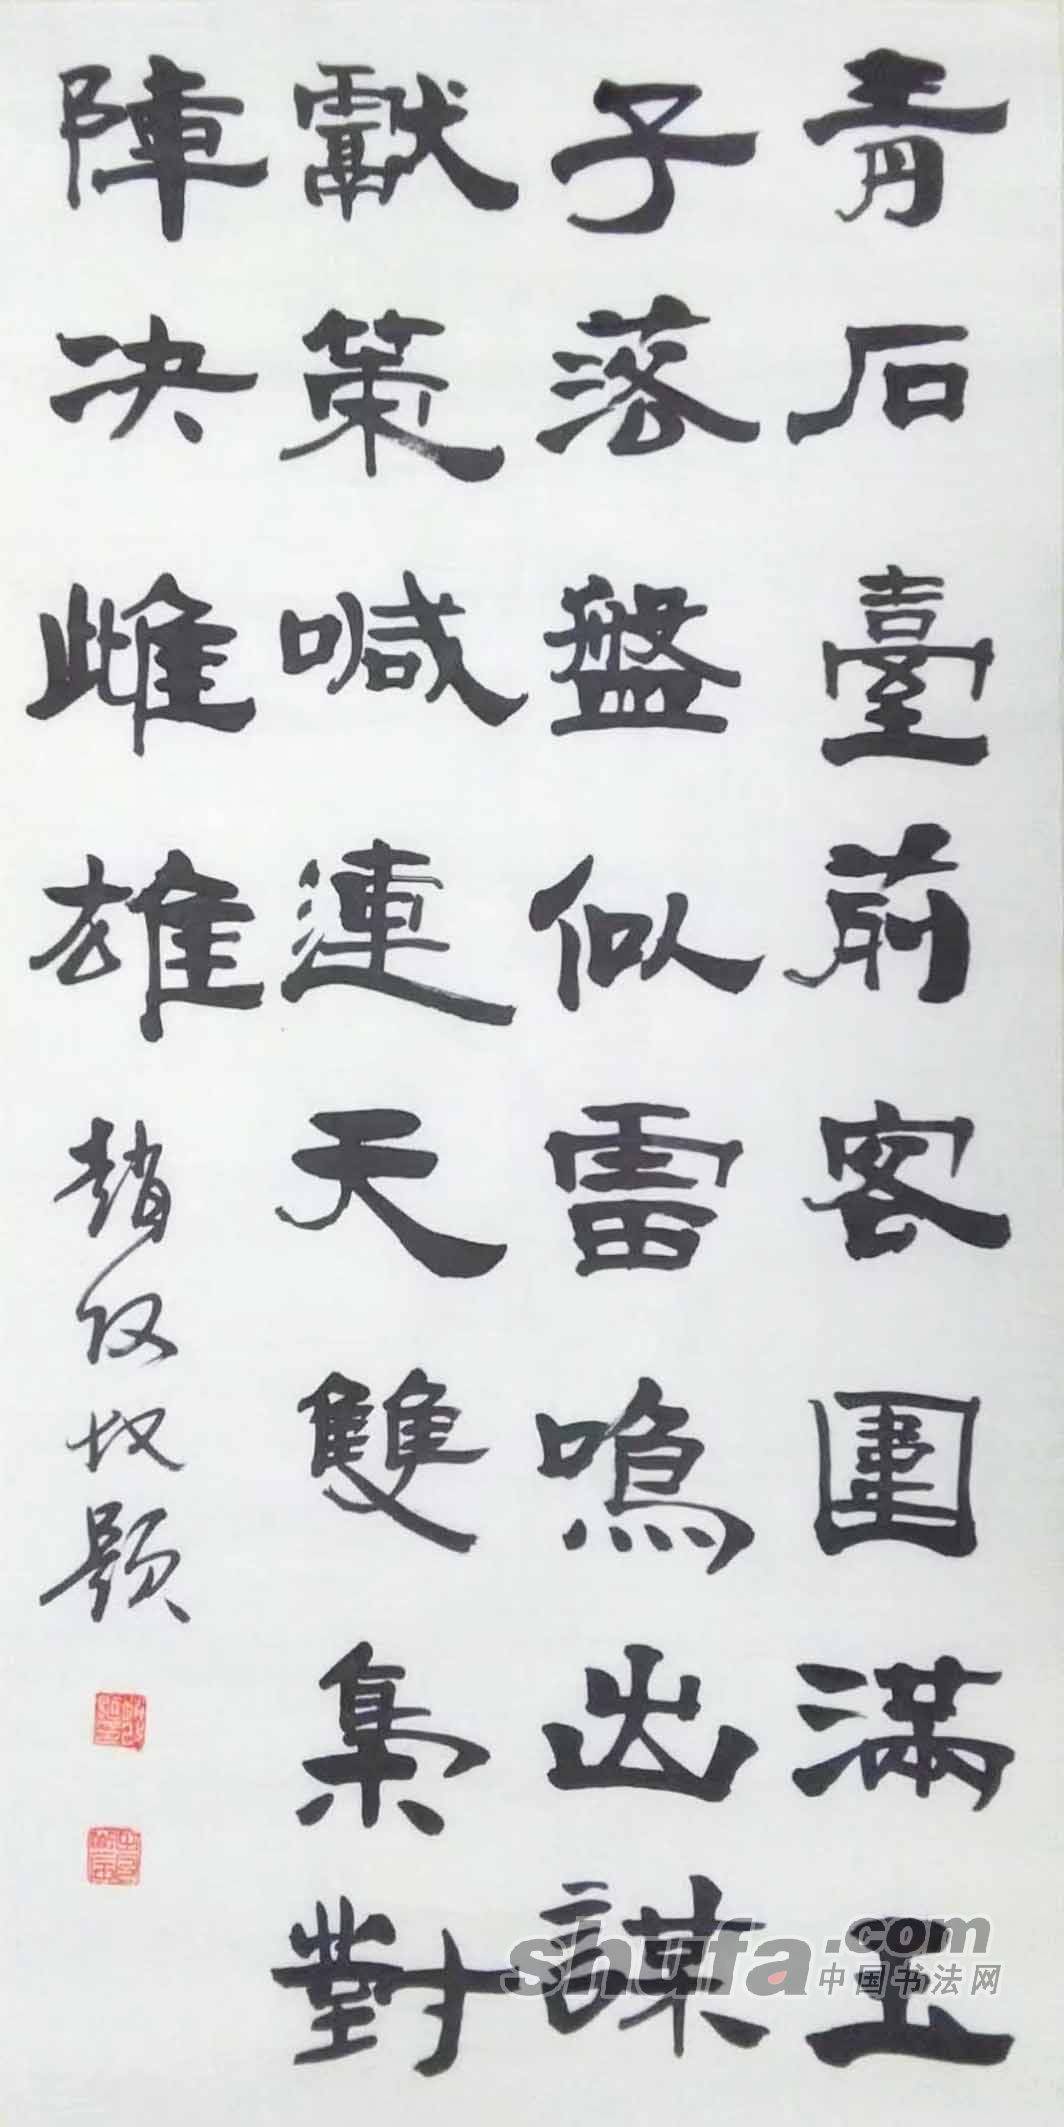 青石臺前客圍滿玉
子落盤似雷鳴出謀
獻策喊連天雙梟對
陣決雌雄
趙
題
shufa.com
中国书法网